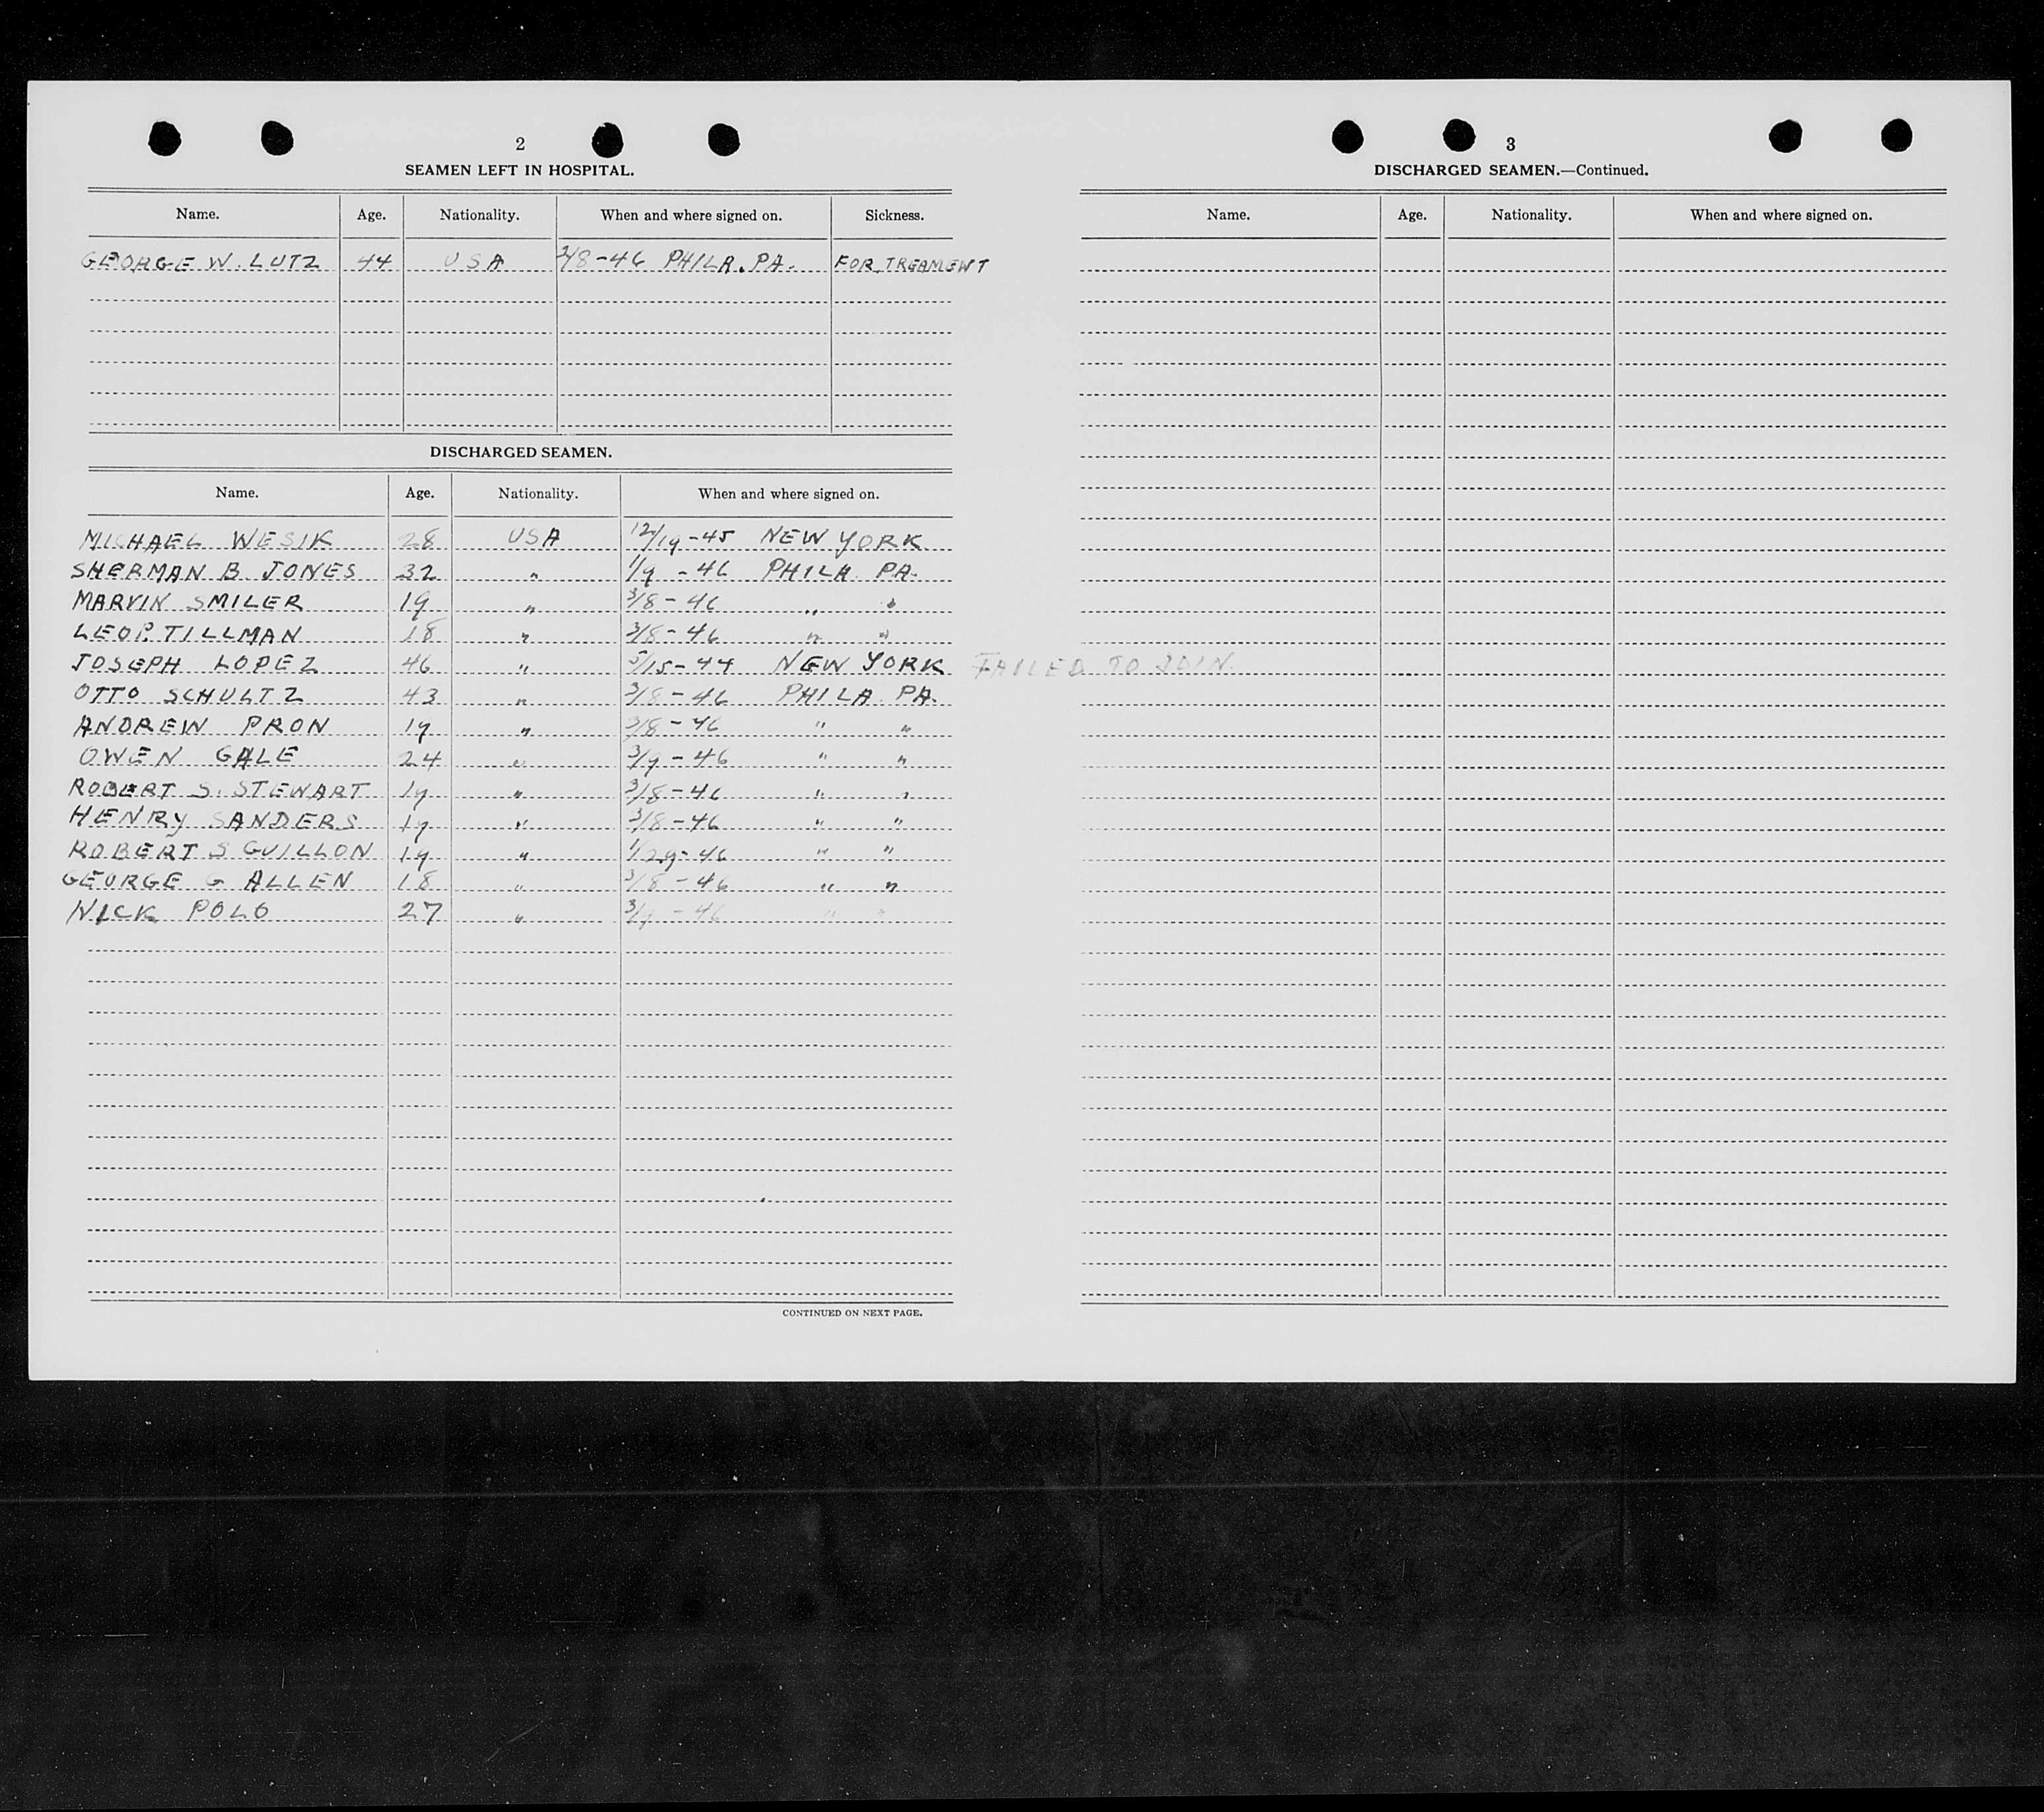 2
SEAMEN LEFT IN HOSPITAL.
Name. Age. Nationality. When and where signed on. Sickness.
GEORGE W. LUTZ 44 USA 3/8-46 PHILA. PA. FOR TREAMENT
DISCHARGED SEAMEN.
Name. Age. Nationality. When and where signed on.
MICHAEL WESIK 28 USA 12/19-45 NEW YORK
SHERMAN B. JONES 32 " 1/9-46 PHILA. PA.
MARVIN SMILER 19 " 3/8-46 " "
LEO P. TILLMAN 18 " 3/8-46 " "
JOSEPH LOPEZ 46 " 5/15-44 NEW YORK FAILED TO JOIN
OTTO SCHULTZ 43 " 3/8-46 PHILA. PA.
ANDREW PRON 19 " 3/8-46 " "
OWEN GALE 24 " 3/9-46 " "
ROBERT S. STEWART 19 " 3/8-46 " "
HENRY SANDERS 19 " 3/8-46 " "
ROBERT S GUILLON 19 " 1/29-46 " "
GEORGE G ALLEN 18 " 3/8-46 " "
NICK POLO 27 " 3/9-46 " "
CONTINUED ON NEXT PAGE.
3
DISCHARGED SEAMEN.—Continued.
Name. Age. Nationality. When and where signed on.